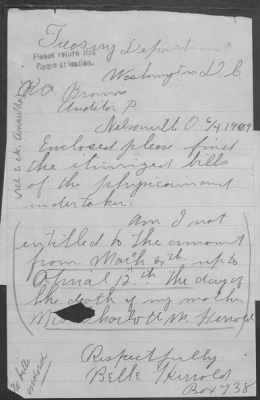 Treasury Department
Please return this
Communication.
Washington D. C
Brown
Auditor P.
Nelsonville O.
Enclosed please find
the itimized bills
of the physician and
undertaker.
Am I not
entitled to the amount
from March 4th up to
April the day of
the death of my mother
Mrs W. Herrold
Respectfully.
Belle Herrold
Box 738